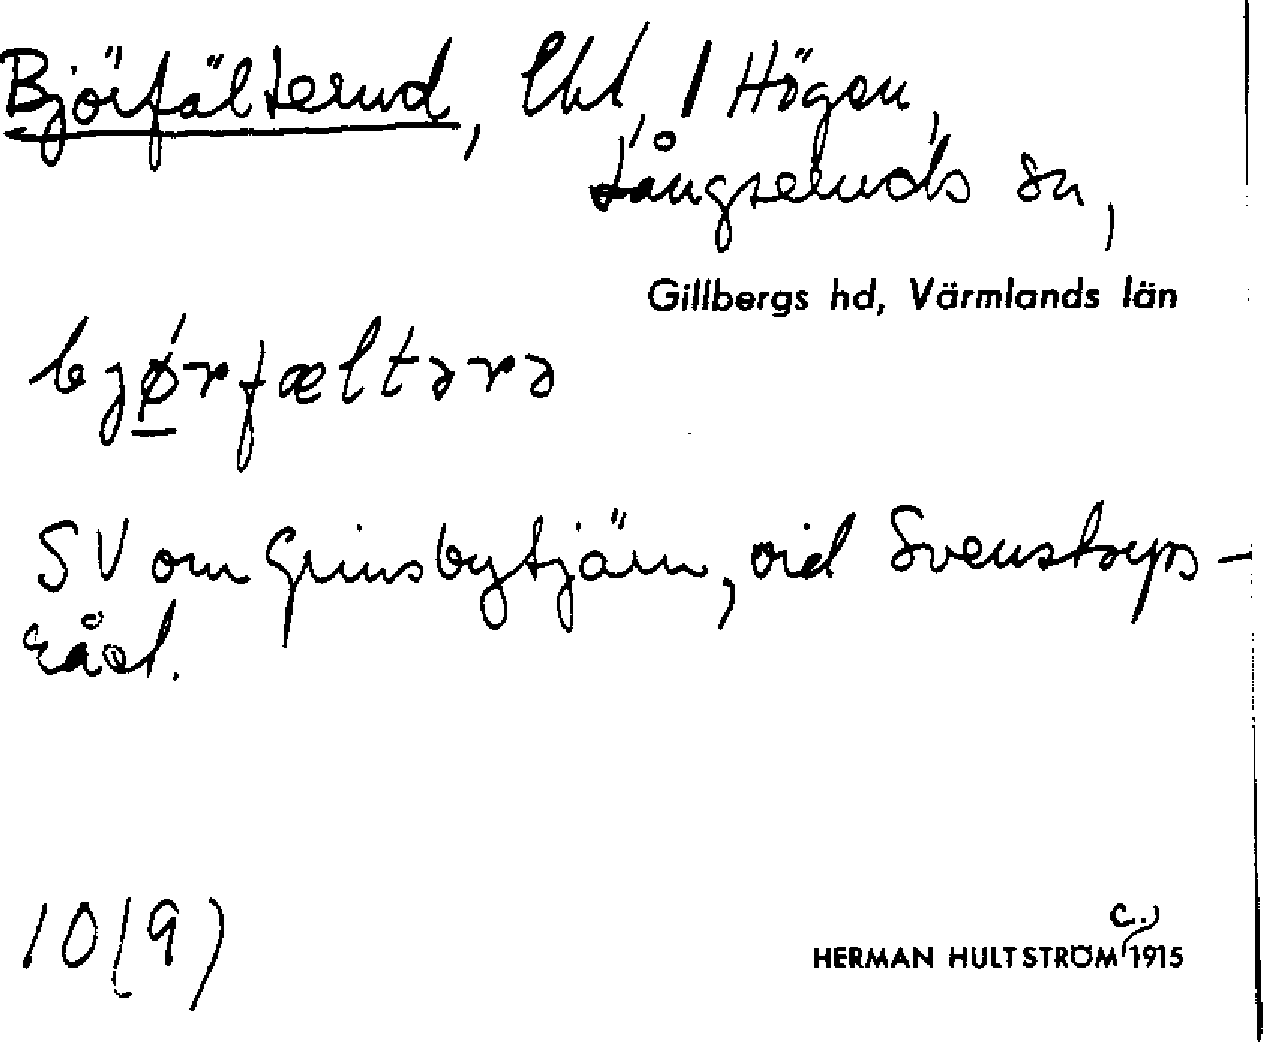 Björfälterud, lht, 1 Högen,
Långseruds sn,
Gillbergs hd, Värmlands län
bjørfæltərə
SV om Grinsbytjärn, vid Svensksys-
råd.
10(9)
c.
HERMAN HULTSTRÖM 1915